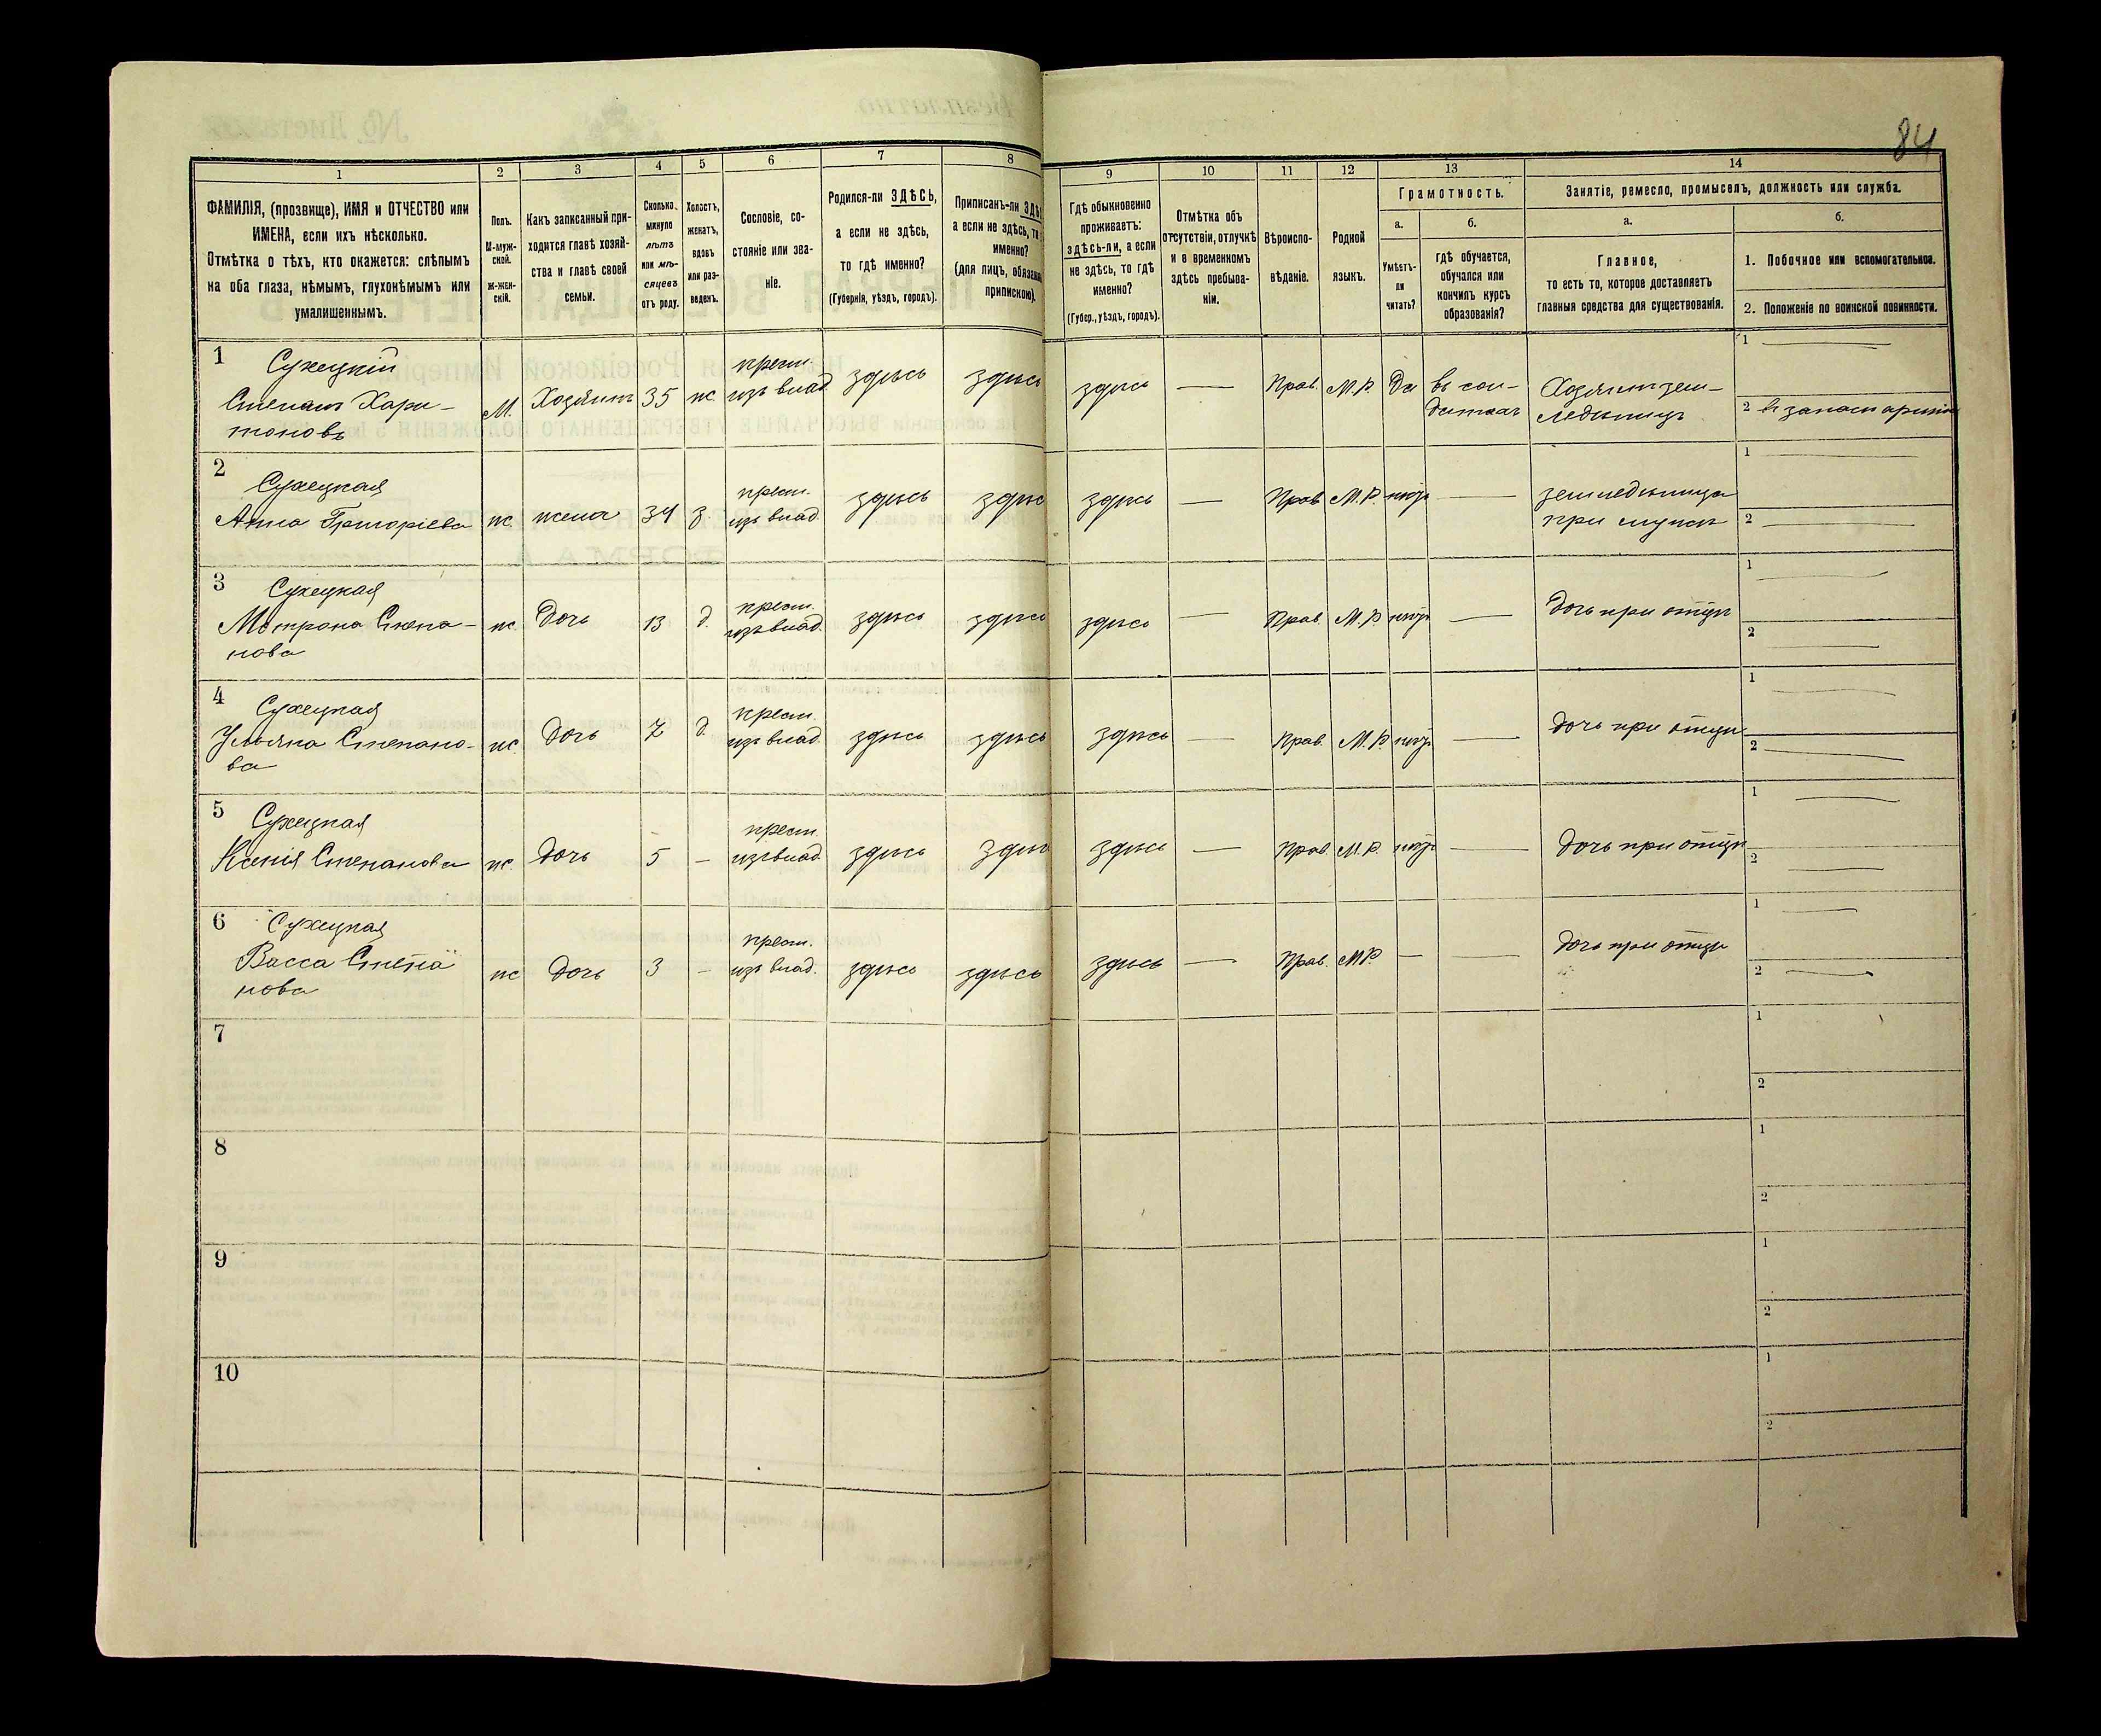 84
1
2
3
4
5
6
7
8
9
10
11
12
13
14
ФАМИЛІЯ, (прозвище), ИМЯ и ОТЧЕСТВО или
ИМЕНА, если ихъ нѣсколько.
Отмѣтка о тѣхъ, кто окажется: слѣпымъ
на оба глаза, нѣмымъ, глухонѣмымъ или
умалишеннымъ.
Полъ.
М-муж-
ской.
Ж-жен-
скій.
Какъ записанный при-
ходится главѣ хозяй-
ства и главѣ своей
семьи.
Сколько
минуло
лѣтъ
или мѣ-
сяцевъ
отъ роду.
Холостъ,
женатъ,
вдовъ
или раз-
веденъ.
Сословіе, со-
стояніе или зва-
ніе.
Родился-ли ЗДѢСЬ,
а если не здѣсь,
то гдѣ именно?
(Губернія, уѣздъ, городъ).
Приписанъ-ли
а если не здѣсь,
именно?
(для лицъ,
припискою).
Гдѣ обыкновенно
проживаетъ:
здѣсь-ли, а если
не здѣсь, то гдѣ
именно?
(Губер., уѣздъ, городъ).
Отмѣтка объ
отсутствіи, отлучкѣ
и о временномъ
здѣсь пребыва-
ніи.
Вѣроиспо-
вѣданіе.
Родной
языкъ.
Грамотность.
а.
Умѣетъ-
ли
читать?
б.
гдѣ обучается,
обучался или
кончилъ курсъ
образованія?
Занятіе, ремесло, промыселъ, должность или служба.
а.
Главное,
то есть то, которое доставляетъ
главныя средства для существованія.
б.
1. Побочное или вспомогательное.
2. Положеніе по воинской повинности.
1 Сухецкій
Степанъ Хари-
тоновъ
М. Хозяинъ 35 ж крест.
изъ влад. здѣсь здѣсь здѣсь — Прав. М.Р. Да въ сол-
датахъ Хозяинъ зем-
ледѣлецъ 1 —
2 въ запасѣ арміи
2 Сухецкая
Анна Григоріева ж жена 34 з. крест.
изъ влад. здѣсь здѣсь здѣсь — Прав. М.Р. — земледѣлица
при мужѣ 1 —
2 —
3 Сухецкая
Матрона Степа-
нова
ж. Дочь 13 д. крест.
изъ влад. здѣсь здѣсь здѣсь — Прав. М.Р. — Дочь при отцѣ 1 —
2 —
4 Сухецкая
Ульяна Степано-
ва
ж. Дочь 7 д. крест.
изъ влад. здѣсь здѣсь здѣсь — Прав. М.Р. — дочь при отцѣ 1 —
2 —
5 Сухецкая
Ксенія Степанова ж. Дочь 5 — крест.
изъ влад. здѣсь здѣсь здѣсь — Прав. М.Р. — дочь при отцѣ 1 —
2 —
6 Сухецкая
Васса Степа
нова
ж Дочь 3 — крест.
изъ влад. здѣсь здѣсь здѣсь — Прав. М.Р. — — дочь при отцѣ 1 —
2 —
7
1
2
8
1
2
9
1
2
10
1
2